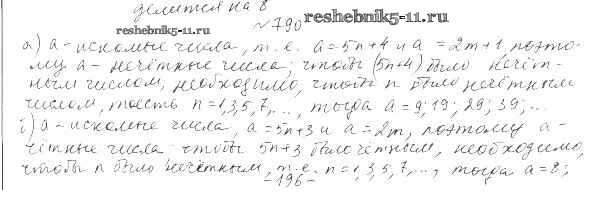 делится на 8
reshebnik5-11.ru
№790
reshebnik5-11.ru
а) a - искомые числа, т.е. a = 5n+4 и a = 2m+1, поэто-
му a - нечётные числа; чтобы (5n+4) было нечёт-
ным числом, необходимо, чтобы n было нечётным
числом, то есть n=1,3,5,7,..., тогда a = 9; 19; 29; 39; ...
a - искомые числа, a = 5n+3 и a = 2m, поэтому a -
чётные числа чтобы 5n+3 было чётным, необходимо,
чтобы n было нечётным, т.е. n = 1,3,5,7,..., тогда a = 8;
-196-